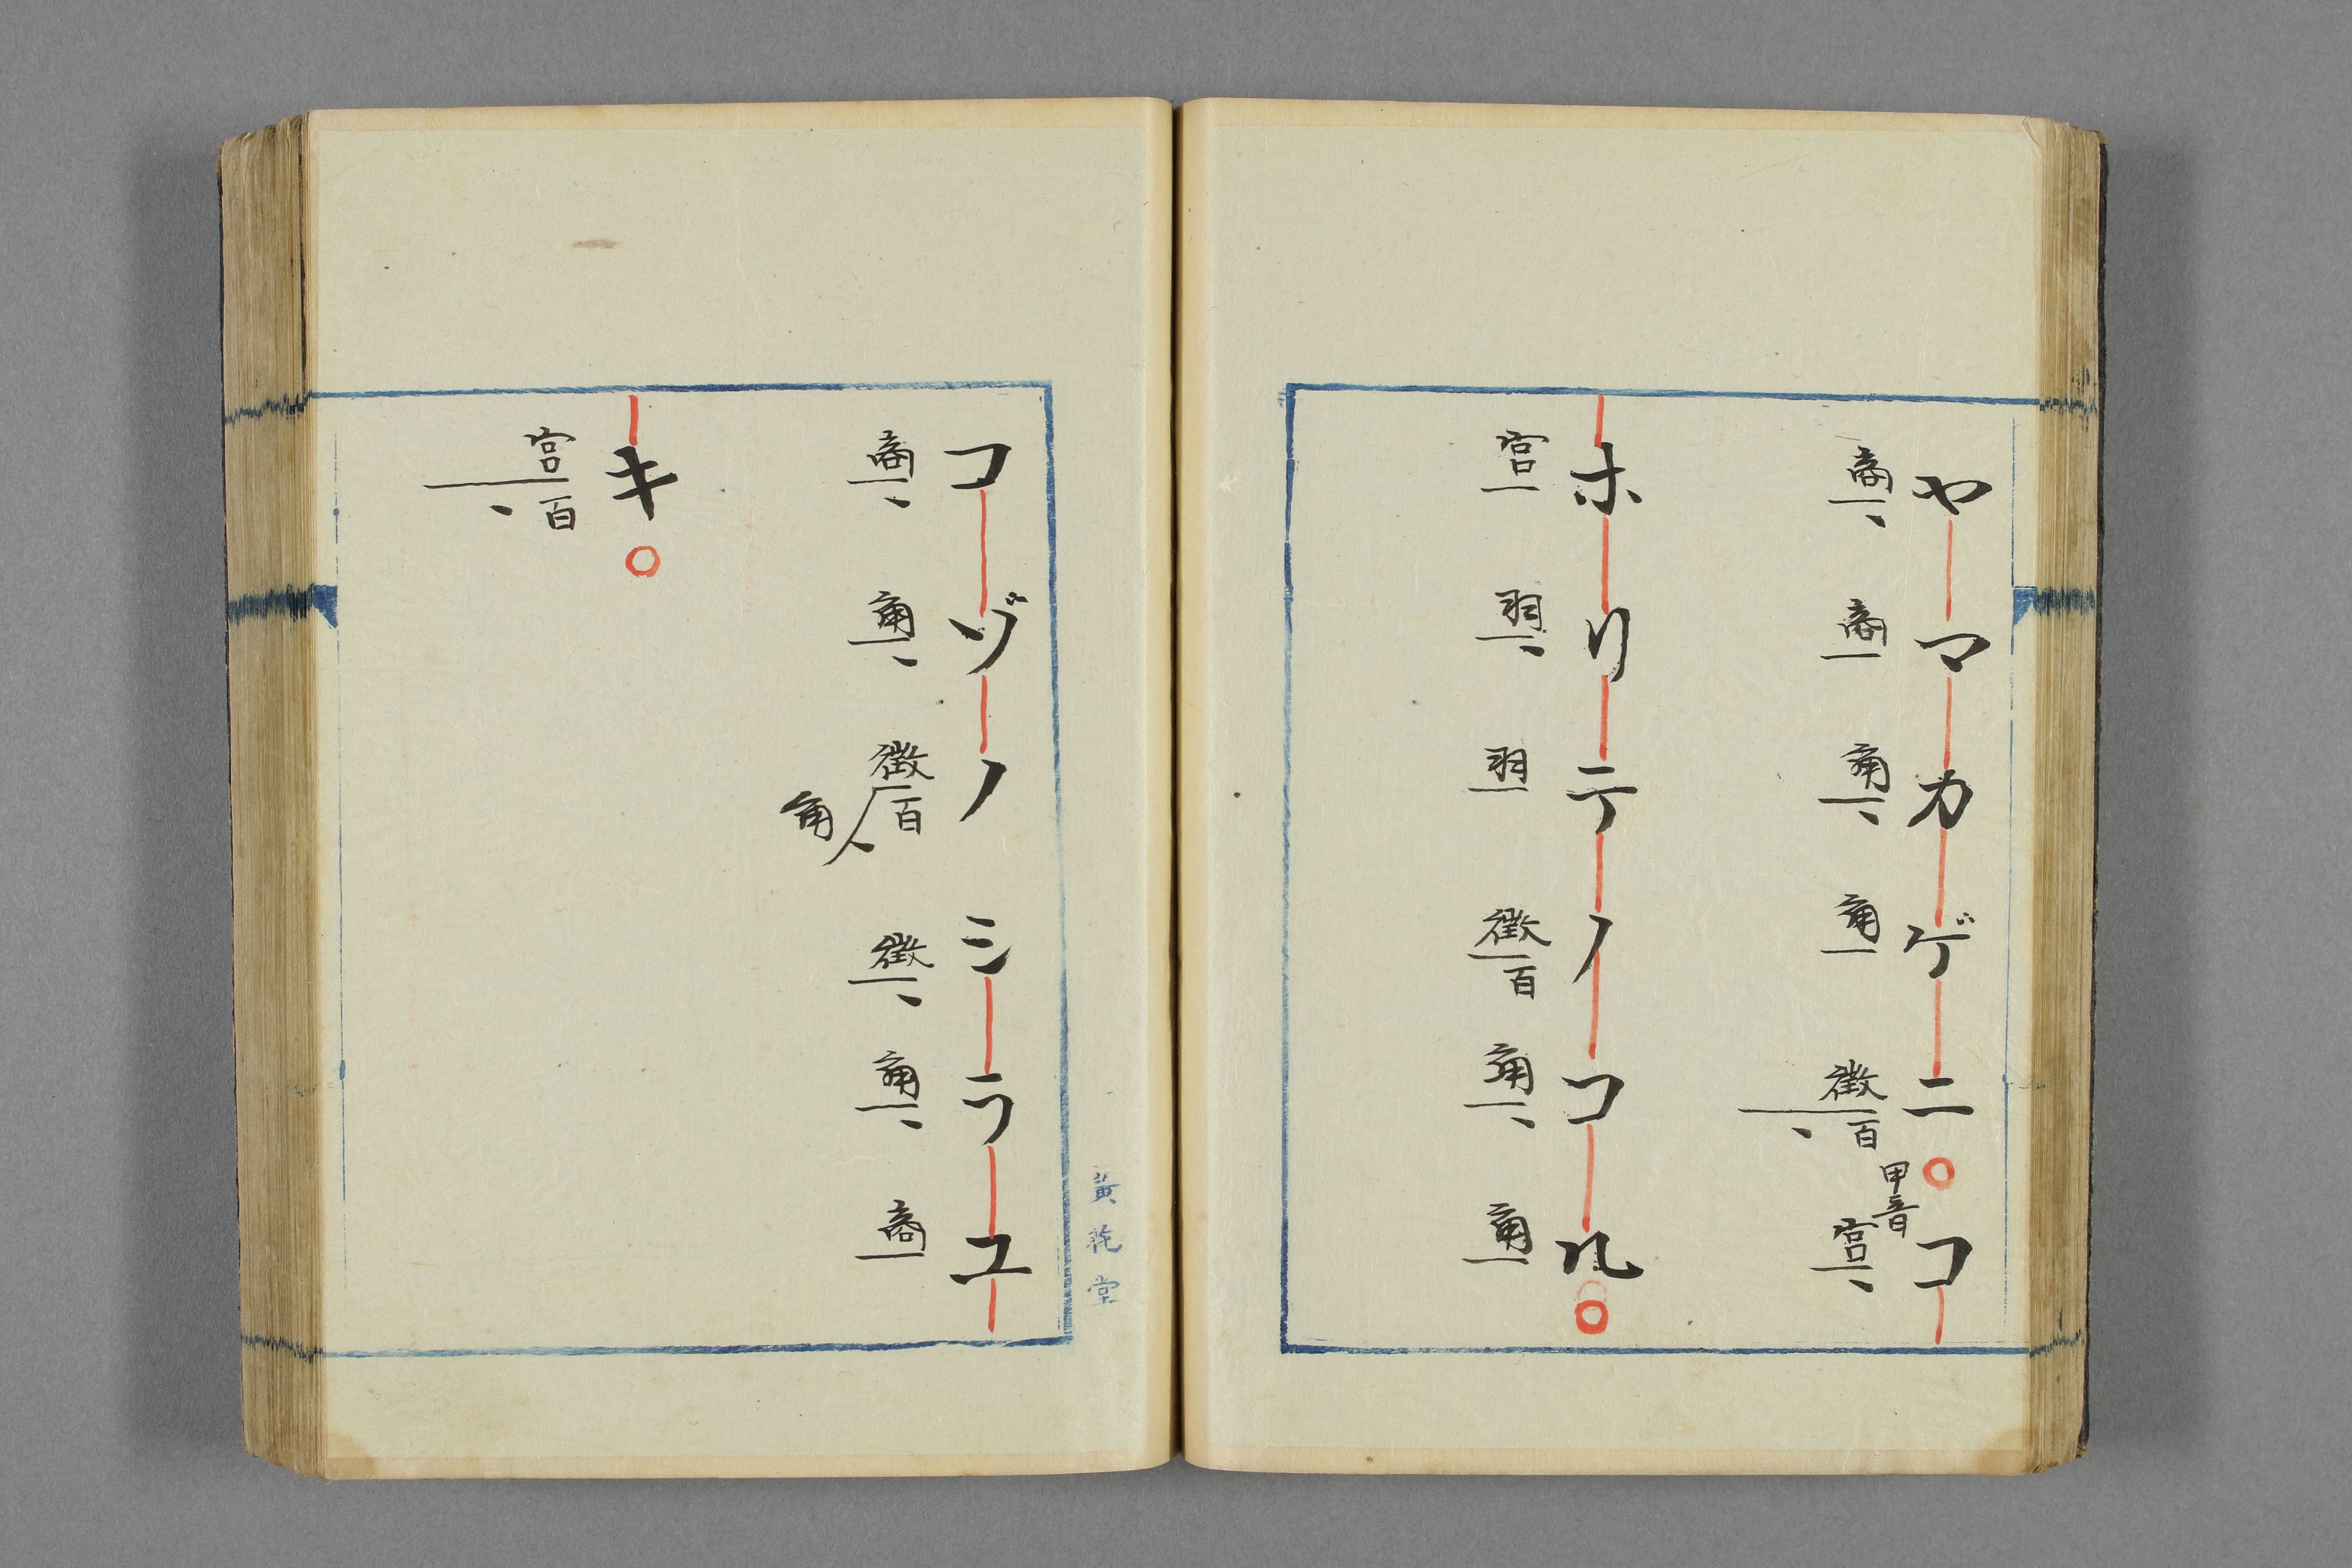 ヤマカゲニ コ
商 商 角 角 徴 百 甲音 宮
ホリテノコル
宮 羽 羽 徴 百 角 角
コゾノシラユ
商 角 徴 百 角 徴 角 商
キ
宮 百
堂